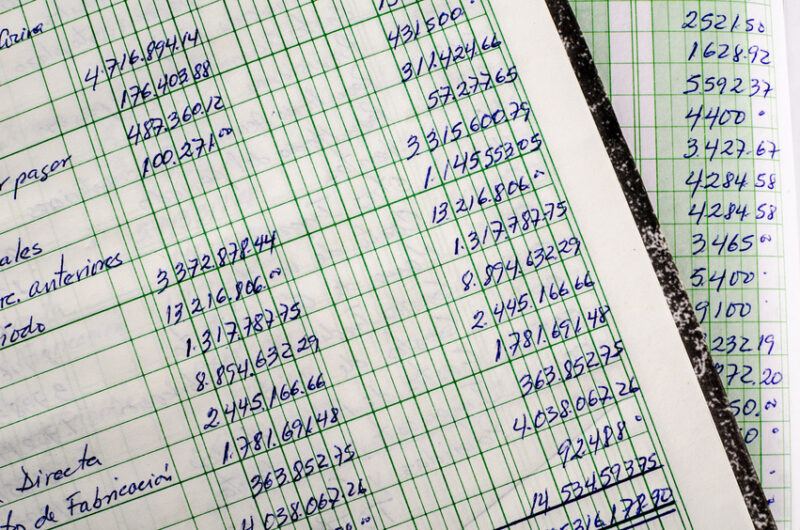 4.716.894.14
176.403.88
487.360.12
pagar 100.271.00
ales
anteriores 3 372.878.44
íodo 13 216.806.00
1.317.787.75
8.894.632.29
2.445.166.66
1.781.691.48
Directa 363.852.75
de Fabricación 4.038.067.26
431500
311.424.66
57.277.65
3 315 600.79
1.145553.05
13 216.806.00
1.317.787.75
8.894.632.29
2.445.166.66
1781.691.48
363.852.75
4.038.067.26
92.488
14 534593.75
316.178.90
2521.50
1628.92
559237
4400
3.427.67
4284.58
4284.58
3465.00
5.400
9100
232.19
72.20
50.00
0